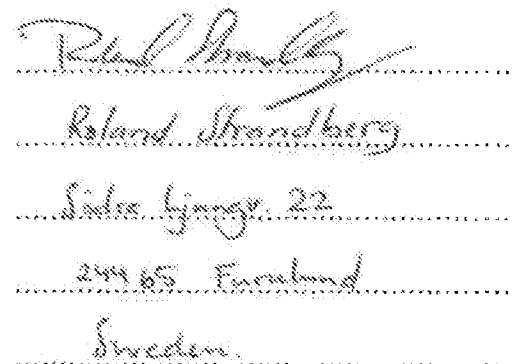 Roland Strandberg
Roland Strandberg
Södra Ljungv. 22
244 65 Furulund
Sweden.